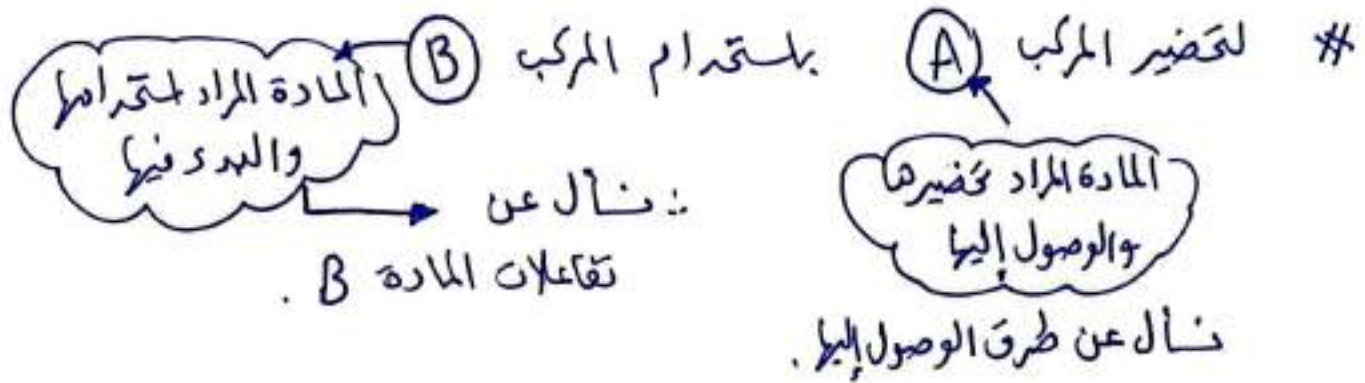 # لتحضير المركب A باستخدام المركب B
المادة المراد تحضيرها
والوصول إليها
نسأل عن طرق الوصول إليها .
المادة المراد استخدامها
والبدء فيها
∴ نسأل عن
تفاعلات المادة B .